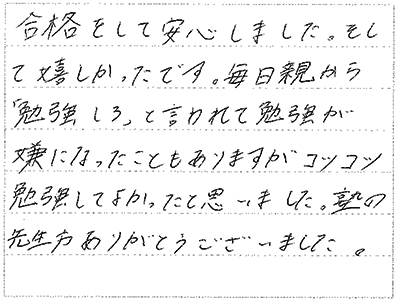 合格をして安心しました。そし
て嬉しかったです。毎日親から
「勉強しろ」と言われて勉強が
嫌になったこともありますがコツコツ
勉強してよかったと思いました。塾の
先生方ありがとうございました。